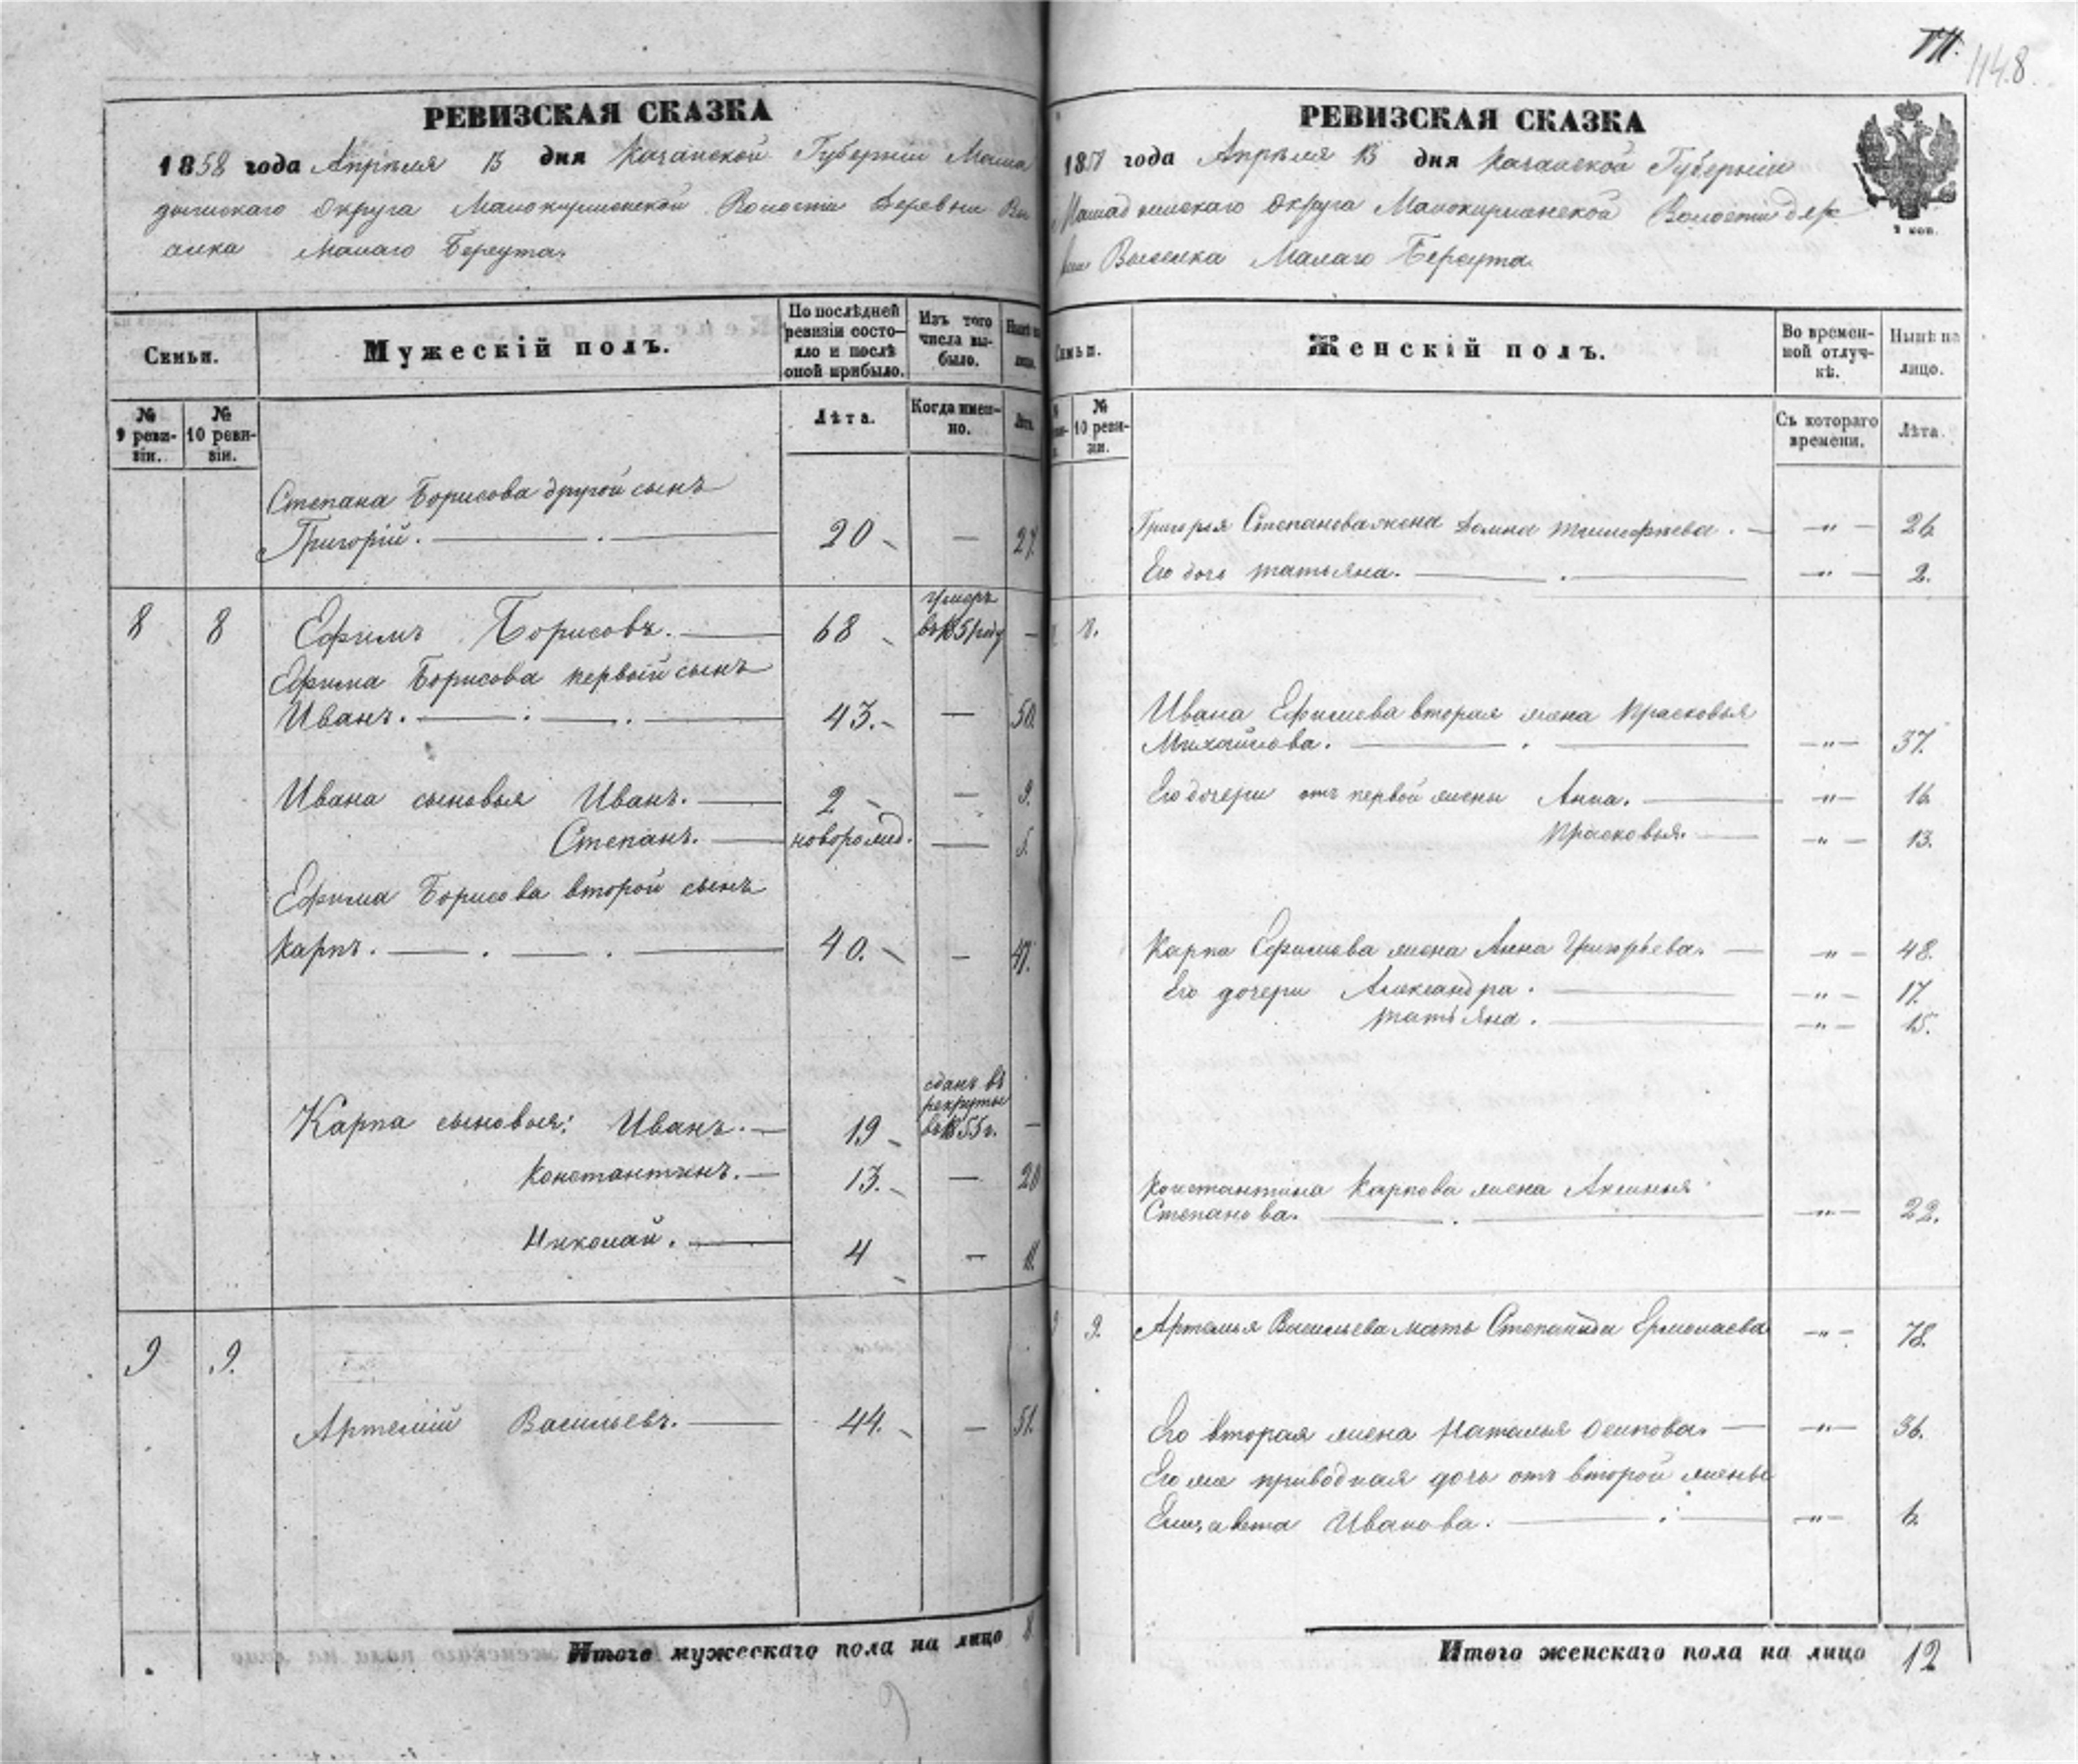 148
РЕВИЗСКАЯ СКАЗКА
1858 года Апрѣля 15 дня Казанской Губерніи Мама
дышскаго Округа Малокирменской Волости Деревни Вы
селка Малаго Берсута.
Семьи.
Мужескій полъ.
По послѣдней ревизіи состо-
яло и послѣ
оной прибыло.
Изъ того
числа вы-
было.
Нынѣ на
лицо.
№
9 реви-
зіи.
№
10 реви-
зіи.
Лѣта.
Когда имен-
но.
Лѣта.
Степана Борисова другой сынъ
Григорій. 20 — 27.
8 8 Ефимъ Борисовъ. 68 умеръ
въ 1851 году —
Ефима Борисова первый сынъ
Иванъ. 43. — 50.
Ивана сыновья Иванъ. 2 — 9.
Степанъ. новорожд. — 5.
Ефима Борисова второй сынъ
Карпъ. 40. — 47.
Карпа сыновья: Иванъ. 19 сданъ въ
рекруты
въ 1855 г. —
Константинъ. 13. — 20
Николай. 4 — 11.
9 9. Артемій Васильевъ. 44. — 51.
Итого мужескаго пола на лицо 8
РЕВИЗСКАЯ СКАЗКА
1858 года Апрѣля 15 дня Казанской Губерніи
Мамадышскаго Округа Малокирменской Волости дер
вни Выселка Малаго Берсута
Семьи.
Женскій полъ.
Во времен-
ной отлуч-
кѣ.
Нынѣ на
лицо.
№
10 реви-
зіи.
Съ котораго
времени.
Лѣта.
Григорья Степанова жена Домна Тимофѣева. — " — 26.
Его дочь Татьяна. — " — 2.
8.
Ивана Ефимова вторая жена Прасковья
Михайлова. — " — 37.
Его дочери отъ первой жены Анна. — " — 16.
Прасковья. — " — 13.
Карпа Ефимова жена Анна Григорьева. — " — 48.
Его дочери Александра. — " — 17.
Татьяна. — " — 15.
Константина Карпова жена Аксинья
Степанова. — " — 22.
9. Артемья Васильева мать Степанида Ермолаева — " — 78.
Его вторая жена Наталья Осипова. — " — 36.
Его же приводная дочь отъ второй жены
Елизавета Иванова. — " — 6.
Итого женскаго пола на лицо 12